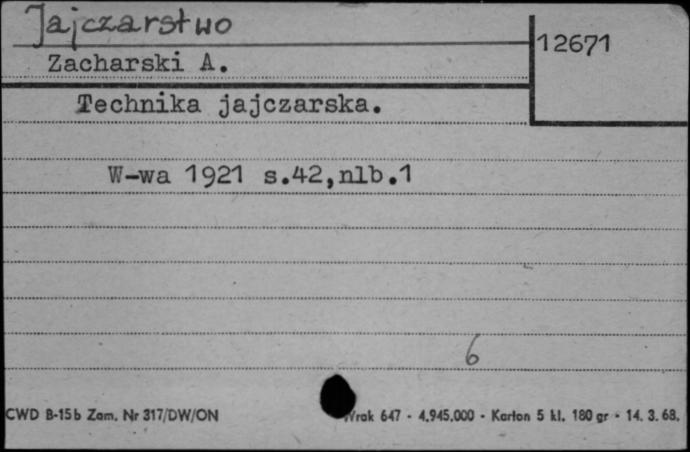 Jajczarstwo
12671
Zacharski A.
Technika jajczarska.
W-wa 1921 s.42,nlb.1
6
CWD B-15b Zam. Nr 317/DW/ON
647 - 4.945.000 - Karton 5 kl. 180 gr - 14. 3. 68.